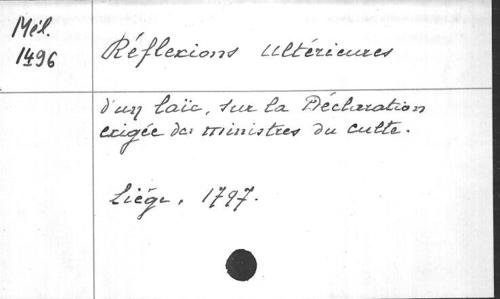 Mél.
1496
Réflexions ultérieures
d'un laïc, sur la Déclaration
exigée des ministres du culte.
Liége, 1797.